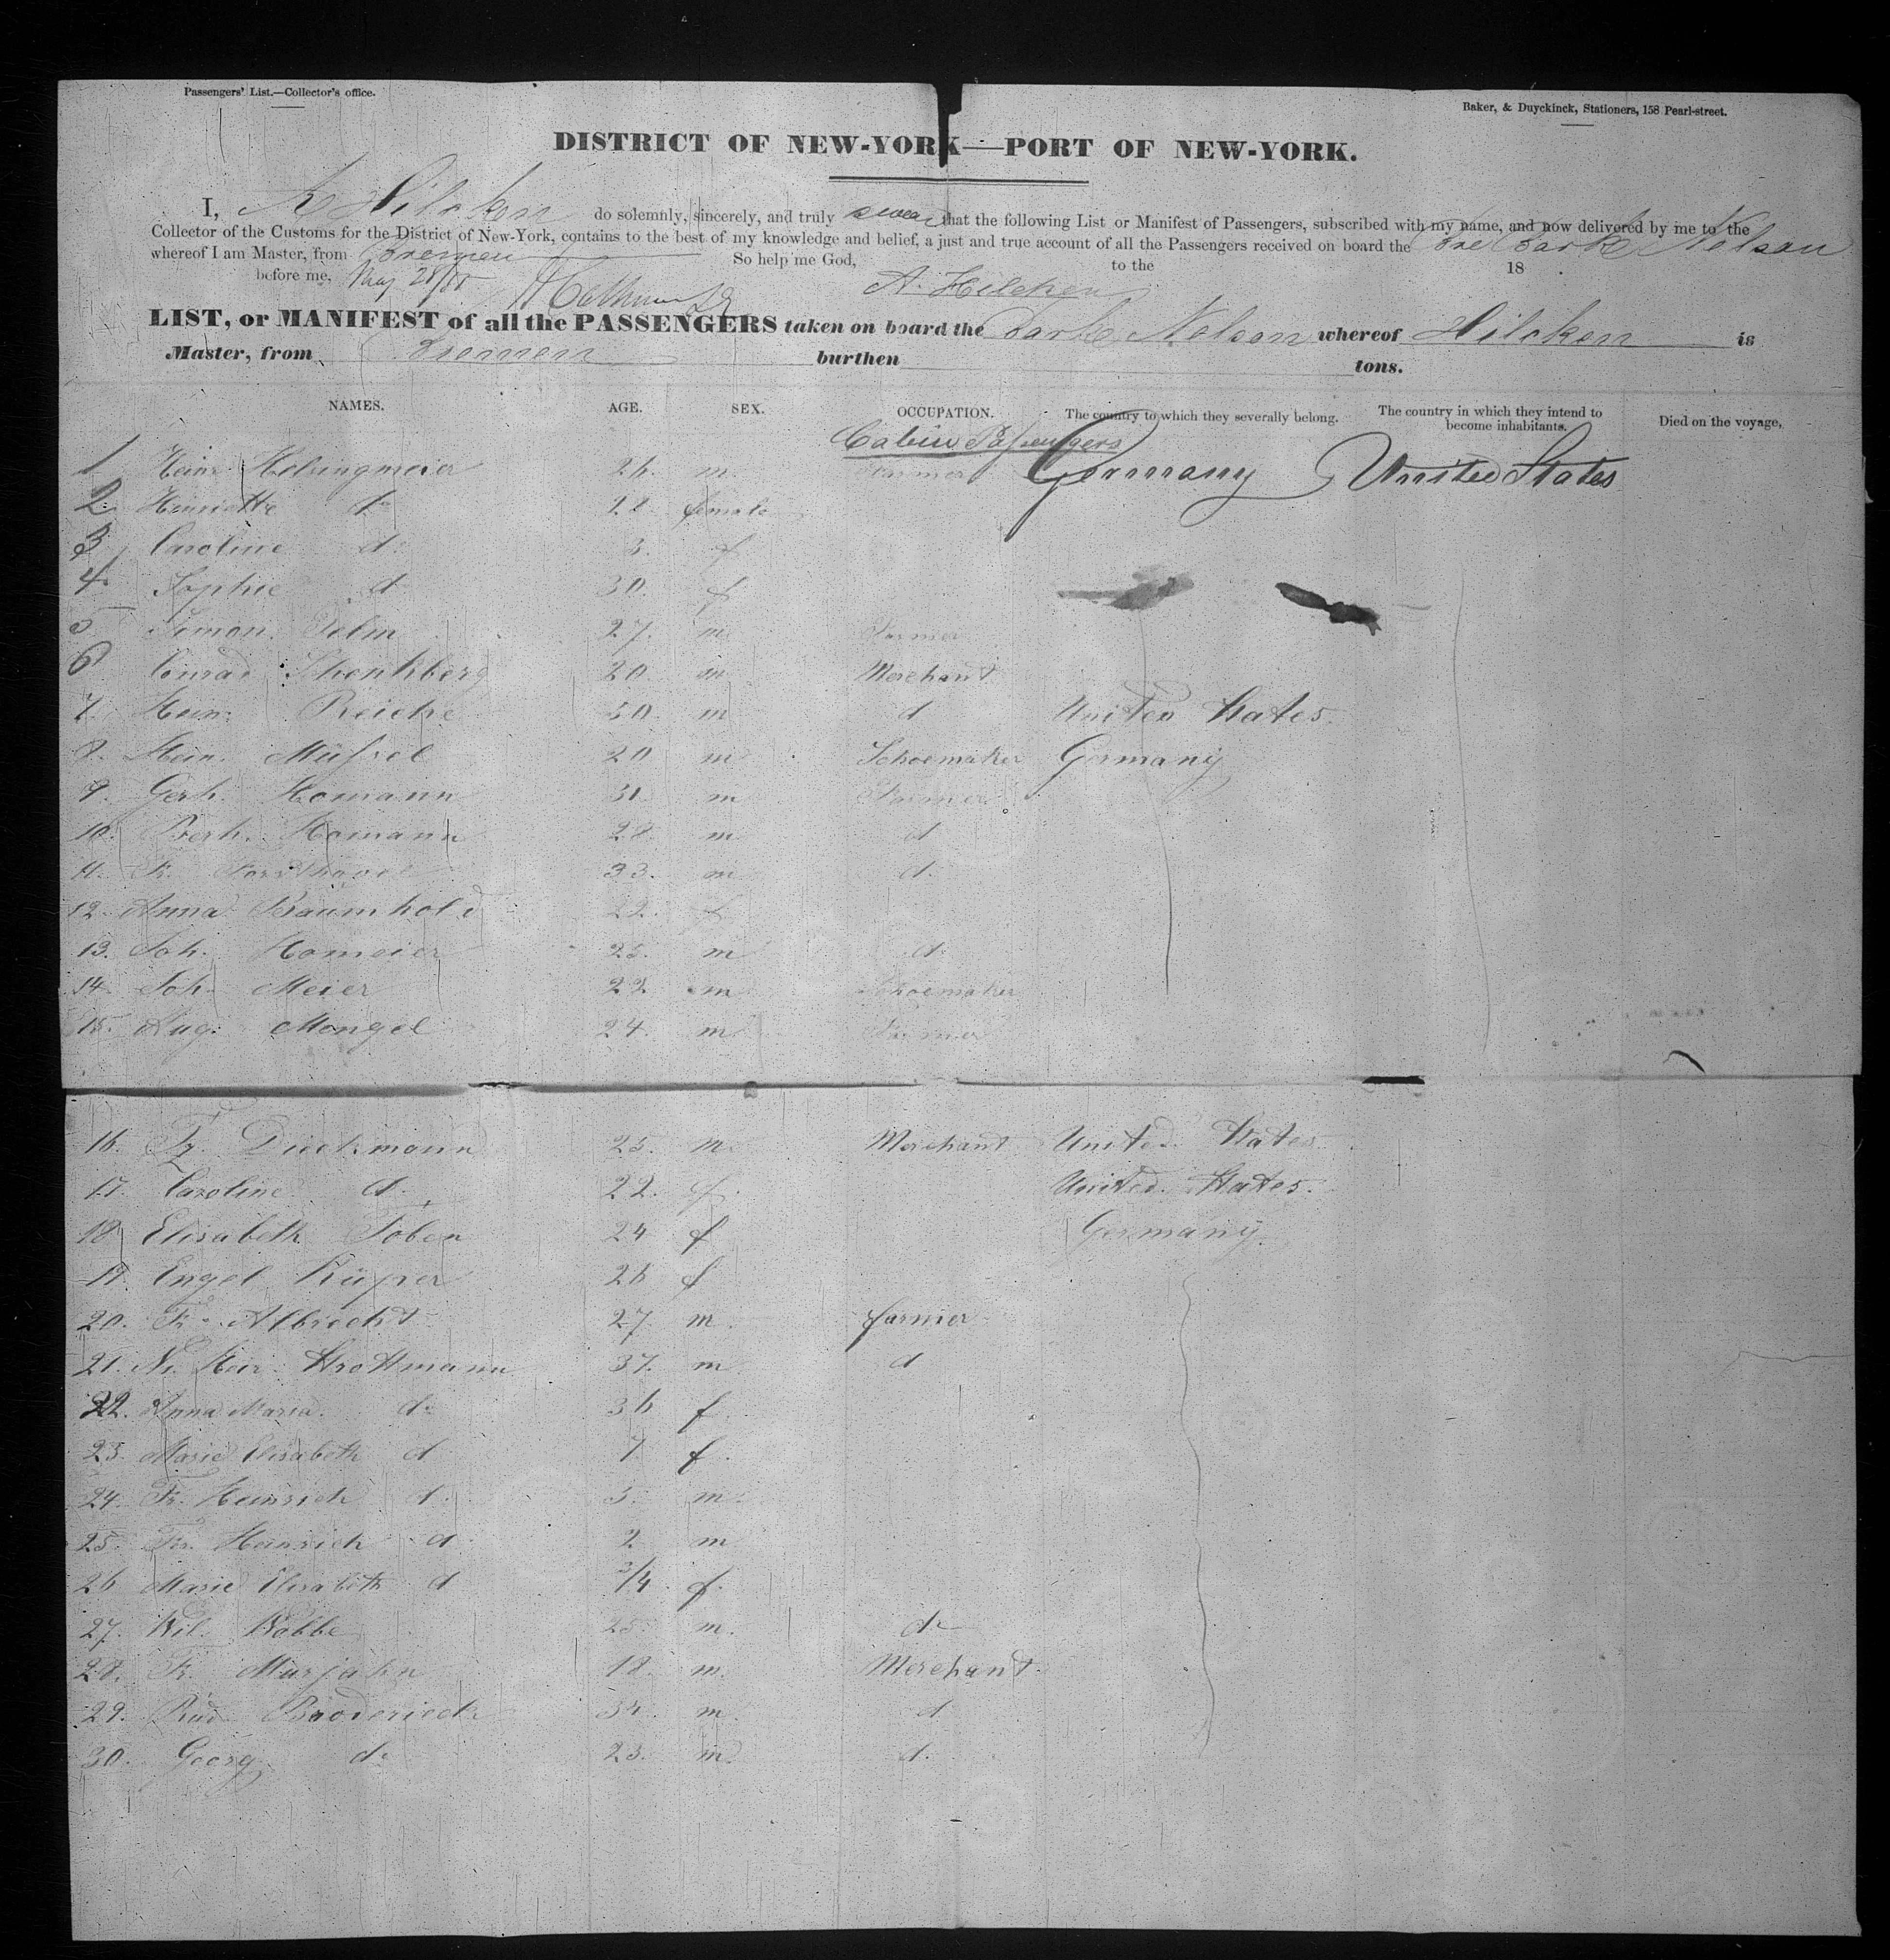 Passengers' List.—Collector's office.
Baker, & Duyckinck, Stationers, 158 Pearl-street.
DISTRICT OF NEW-YORK—PORT OF NEW-YORK.
I, A Hilcken do solemnly, sincerely, and truly swear that the following List or Manifest of Passengers, subscribed with my name, and now delivered by me to the
Collector of the Customs for the District of New-York, contains to the best of my knowledge and belief, a just and true account of all the Passengers received on board the Bre Barke Nelson
whereof I am Master, from Bremen So help me God, to the 18
before me, May 28/ A. Hilcken
LIST, or MANIFEST of all the PASSENGERS taken on board the Barke Nelson whereof Hilcken is
Master, from Bremen burthen tons.
NAMES. AGE. SEX. OCCUPATION. The country to which they severally belong. The country in which they intend to become inhabitants. Died on the voyage,
Cabin Passengers
1 Heinr. Helvingmeier 26. m. Farmer Germany United States
2. Henriette do 28 female
3 Caroline d. 3. f
4. Sophie d 30. f
5 Simon 27. m Farmer
6 Conrad 20. m Merchant
7. Hein. Reiche 30. m d United States.
8. Hein. Müssel 20 m Schoemaker Germany
9. Gerh. Homann 31. m Farmer
10. Berh. Homann 28. m d
11. Fr. 33. m d.
12. Anna Baumhold 22. f
13. Joh. Homeier 25. m d.
14. Joh. Meier 22. m Schoemaker
15. Aug. Mengel 24. m Farmer
16. Fr. Dieckmann 25. m. Merchant United States
17. Caroline d. 22. f. United States.
18 Elisabeth Toben 24 f Germany.
19. Engel Küper 26 f
20. Fr. Albrecht 27 m. farmer
21. Hein. Strottmann 37. m d
22. Anna Maria. do 36 f
23. Marie Elisabeth d 7 f.
24. Fr. Heinrich d. 5. m.
25. Fr. Heinrich d 2 m
26 Marie Elisabeth d 3/4 f.
27. Wil. Kobbe 25. m. do
28. Fr. Murjahn 18. m. Merchant.
29. Rud. Broderieck 34. m. d
30. Georg do 23. m d.